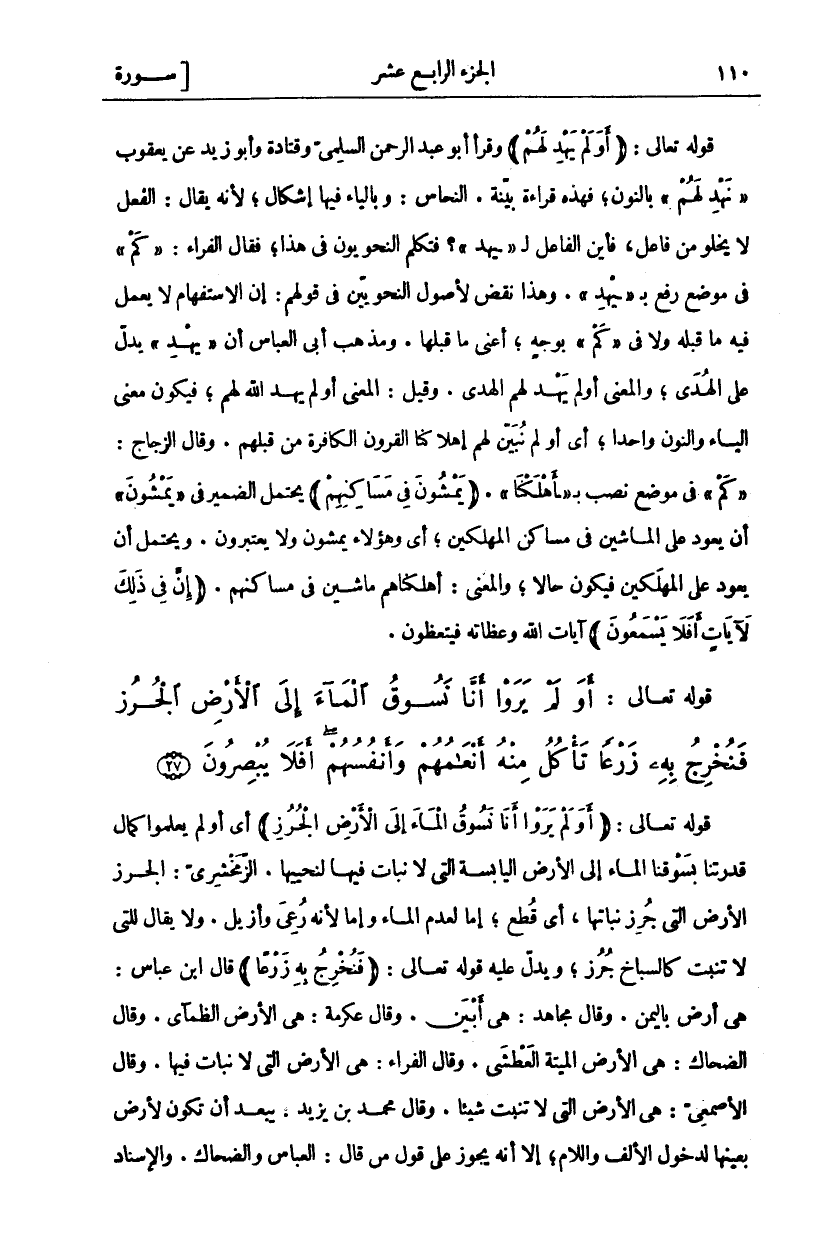 ١١٠ الجزء الرابع عشر [ سـورة
قوله تعالى : ﴿ أَوَلَمْ يَهْدِ لَهُمْ ﴾ وقرأ أبو عبد الرحمن السلمىّ وقتادة وأبو زيد عن يعقوب
« نَهْدِ لَهُمْ » بالنون؛ فهذه قراءة بيّنة . النحاس : وبالياء فيها إشكال؛ لأنه يقال : الفعل
لا يخلو من فاعل، فأين الفاعل لـ « يهد »؟ فتكلم النحويون فى هذا؛ فقال الفراء : « كَمْ »
فى موضع رفع بـ « يَهْدِ » . وهذا نقض لأصول النحويّين فى قولهم: إن الاستفهام لا يعمل
فيه ما قبله ولا فى « كَمْ » بوجهٍ؛ أعنى ما قبلها . ومذهب أبى العباس أن « يهْدِ » يدلّ
على الهُدَى؛ والمعنى أولم يَهْد لهم الهدى . وقيل : المعنى أولم يهد الله لهم؛ فيكون معنى
الياء والنون واحدا؛ أى أو لم نُبَيّن لهم إهلاكنا القرون الكافرة من قبلهم . وقال الزجاج :
« كَمْ » فى موضع نصب بـ « أَهْلَكْنَا » . ﴿ يَمْشُونَ فِى مَسَاكِنِهِمْ ﴾ يحتمل الضمير فى « يَمْشُونَ »
أن يعود على الماشين فى مساكن المهلكين؛ أى وهؤلاء يمشون ولا يعتبرون . ويحتمل أن
يعود على المهلَكين فيكون حالا؛ والمعنى : أهلكناهم ماشين فى مساكنهم . ﴿ إِنَّ فِى ذَلِكَ
لَآيَاتٍ أَفَلَا يَسْمَعُونَ ﴾ آيات الله وعظاته فيتعظون .
قوله تعالى : أَوَ لَمْ يَرَوْا أَنَّا نَسُوقُ ٱلْمَآءَ إِلَى ٱلْأَرْضِ ٱلْجُرُزِ
فَنُخْرِجُ بِهِۦ زَرْعًا تَأْكُلُ مِنْهُ أَنْعَـٰمُهُمْ وَأَنفُسُهُمْ ۖ أَفَلَا يُبْصِرُونَ ٢٧
قوله تعالى : ﴿ أَوَلَمْ يَرَوْا أَنَا نَسُوقُ الْمَاءَ إِلَى الْأَرْضِ الْجُرُزِ ﴾ أى أو لم يعلموا كمال
قدرتنا بسَوْقنا الماء إلى الأرض اليابسة التى لا نبات فيها لنحييها . الزَّمَخْشرىّ : الجرز
الأرض التى جُرِز نباتها، أى قُطع؛ إما لعدم الماء وإما لأنه رُعِىَ وأزيل . ولا يقال للتى
لا تنبت كالسباخ جُرُز؛ ويدلّ عليه قوله تعالى : ﴿ فَنُخْرِجُ بِهِ زَرْعًا ﴾ قال ابن عباس :
هى أرض باليمن . وقال مجاهد : هى أَبْيَن . وقال عكرمة : هى الأرض الظمآى . وقال
الضحاك : هى الأرض الميتة العَطْشَى . وقال الفراء : هى الأرض التى لا نبات فيها . وقال
الأصمعىّ : هى الأرض التى لا تنبت شيئا . وقال محمد بن يزيد : يبعد أن تكون لأرض
بعينها لدخول الألف واللام؛ إلا أنه يجوز على قول من قال : العباس والضحاك . والإسناد